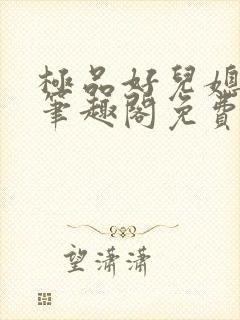 極品好兒媳
筆趣閣免費
望瀟瀟